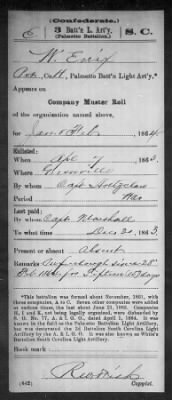 (Confederate.)
E 3 Batt'n L. Art'y. S. C.
(Palmetto Battalion.)
W.
Pvt, Co. E, Palmetto Batt'n Light Art'y.*
Appears on
Company Muster Roll
of the organization named above,
for Jan & Feb, 1864.
Enlisted:
When Apl 7, 1863.
Where Greenville
By whom Capt Holtzclaw
Period War
Last paid:
By whom Capt. Marshall
To what time Dec 31, 1863.
Present or absent Absent
Remarks: On furlough since 28th
Feb 1864 for fifteen 15 days
*This battalion was formed about November, 1861, with
three companies, A to C. Seven other companies were added
at various times, the last about June 21, 1862. Companies
H, I and K, not being legally organized, were disbanded by
S. O. No. 77, A. & I. G. O., dated April 1, 1864. It was
known in the field as the Palmetto Battalion Light Artillery,
but was designated the 3d Battalion South Carolina Light
Artillery by the A. & I. G. O. It is also known as White's
Battalion South Carolina Light Artillery.
Book mark:
(642)
Copyist.